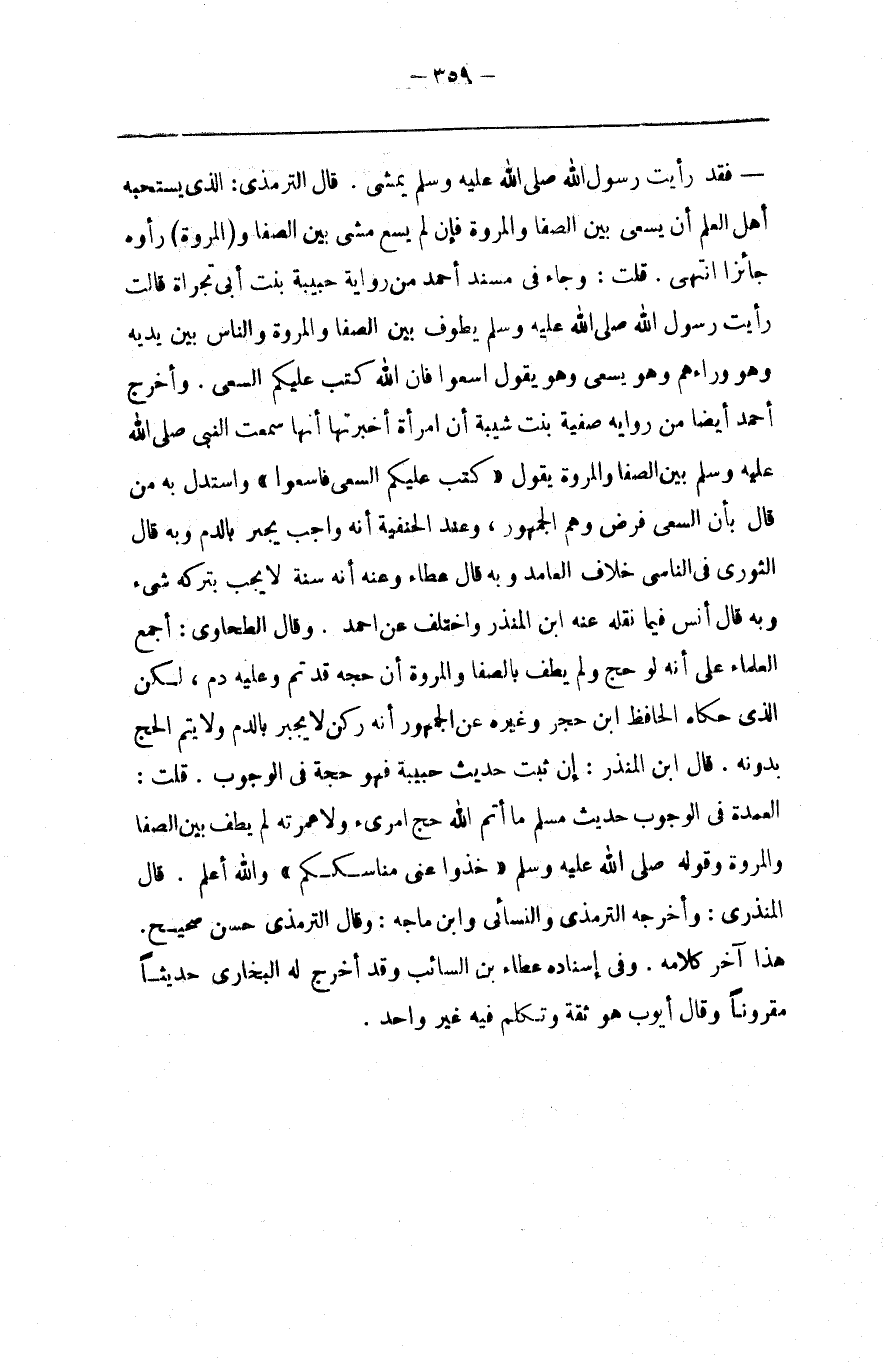 — ٣٥٩ —
— فقد رأيت رسول الله صلى الله عليه وسلم يمشى . قال الترمذى : الذى يستحبه
أهل العلم أن يسعى بين الصفا والمروة فإن لم يسع مشى بين الصفا و(المروة) رأوه
جائزا انتهى . قلت : وجاء فى مسند أحمد من رواية حبيبة بنت أبى تجراة قالت
رأيت رسول الله صلى الله عليه وسلم يطوف بين الصفا والمروة والناس بين يديه
وهو وراءهم وهو يسعى وهو يقول اسعوا فان الله كتب عليكم السعى . وأخرج
أحمد أيضا من روايه صفية بنت شيبة أن امرأة أخبرتها أنها سمعت النبى صلى الله
عليه وسلم بين الصفا والمروة يقول « كتب عليكم السعى فاسعوا » واستدل به من
قال بأن السعى فرض وهم الجمهور ، وعند الحنفية أنه واجب يجبر بالدم وبه قال
الثورى فى الناسى خلاف العامد وبه قال عطاء وعنه أنه سنة لايجب بتركه شىء
وبه قال أنس فيما نقله عنه ابن المنذر واختلف عن احمد . وقال الطحاوى : أجمع
العلماء على أنه لو حج ولم يطف بالصفا والمروة أن حجه قد تم وعليه دم ، لـكن
الذى حكاه الحافظ ابن حجر وغيره عن الجمهور أنه ركن لايجبر بالدم ولا يتم الحج
بدونه . قال ابن المنذر : إن ثبت حديث حبيبة فهو حجة فى الوجوب . قلت :
العمدة فى الوجوب حديث مسلم ما أتم الله حج امرىء ولاعمرته لم يطف بين الصفا
والمروة وقوله صلى الله عليه وسلم « خذوا عنى مناسـكـكم » والله أعلم . قال
المنذرى : وأخرجه الترمذى والنسائى وابن ماجه : وقال الترمذى حسن صحيـح .
هذا آخر كلامه . وفى إسناده عطاء بن السائب وقد أخرج له البخارى حديثـاً
مقروناً وقال أيوب هو ثقة وتـكلم فيه غير واحد .